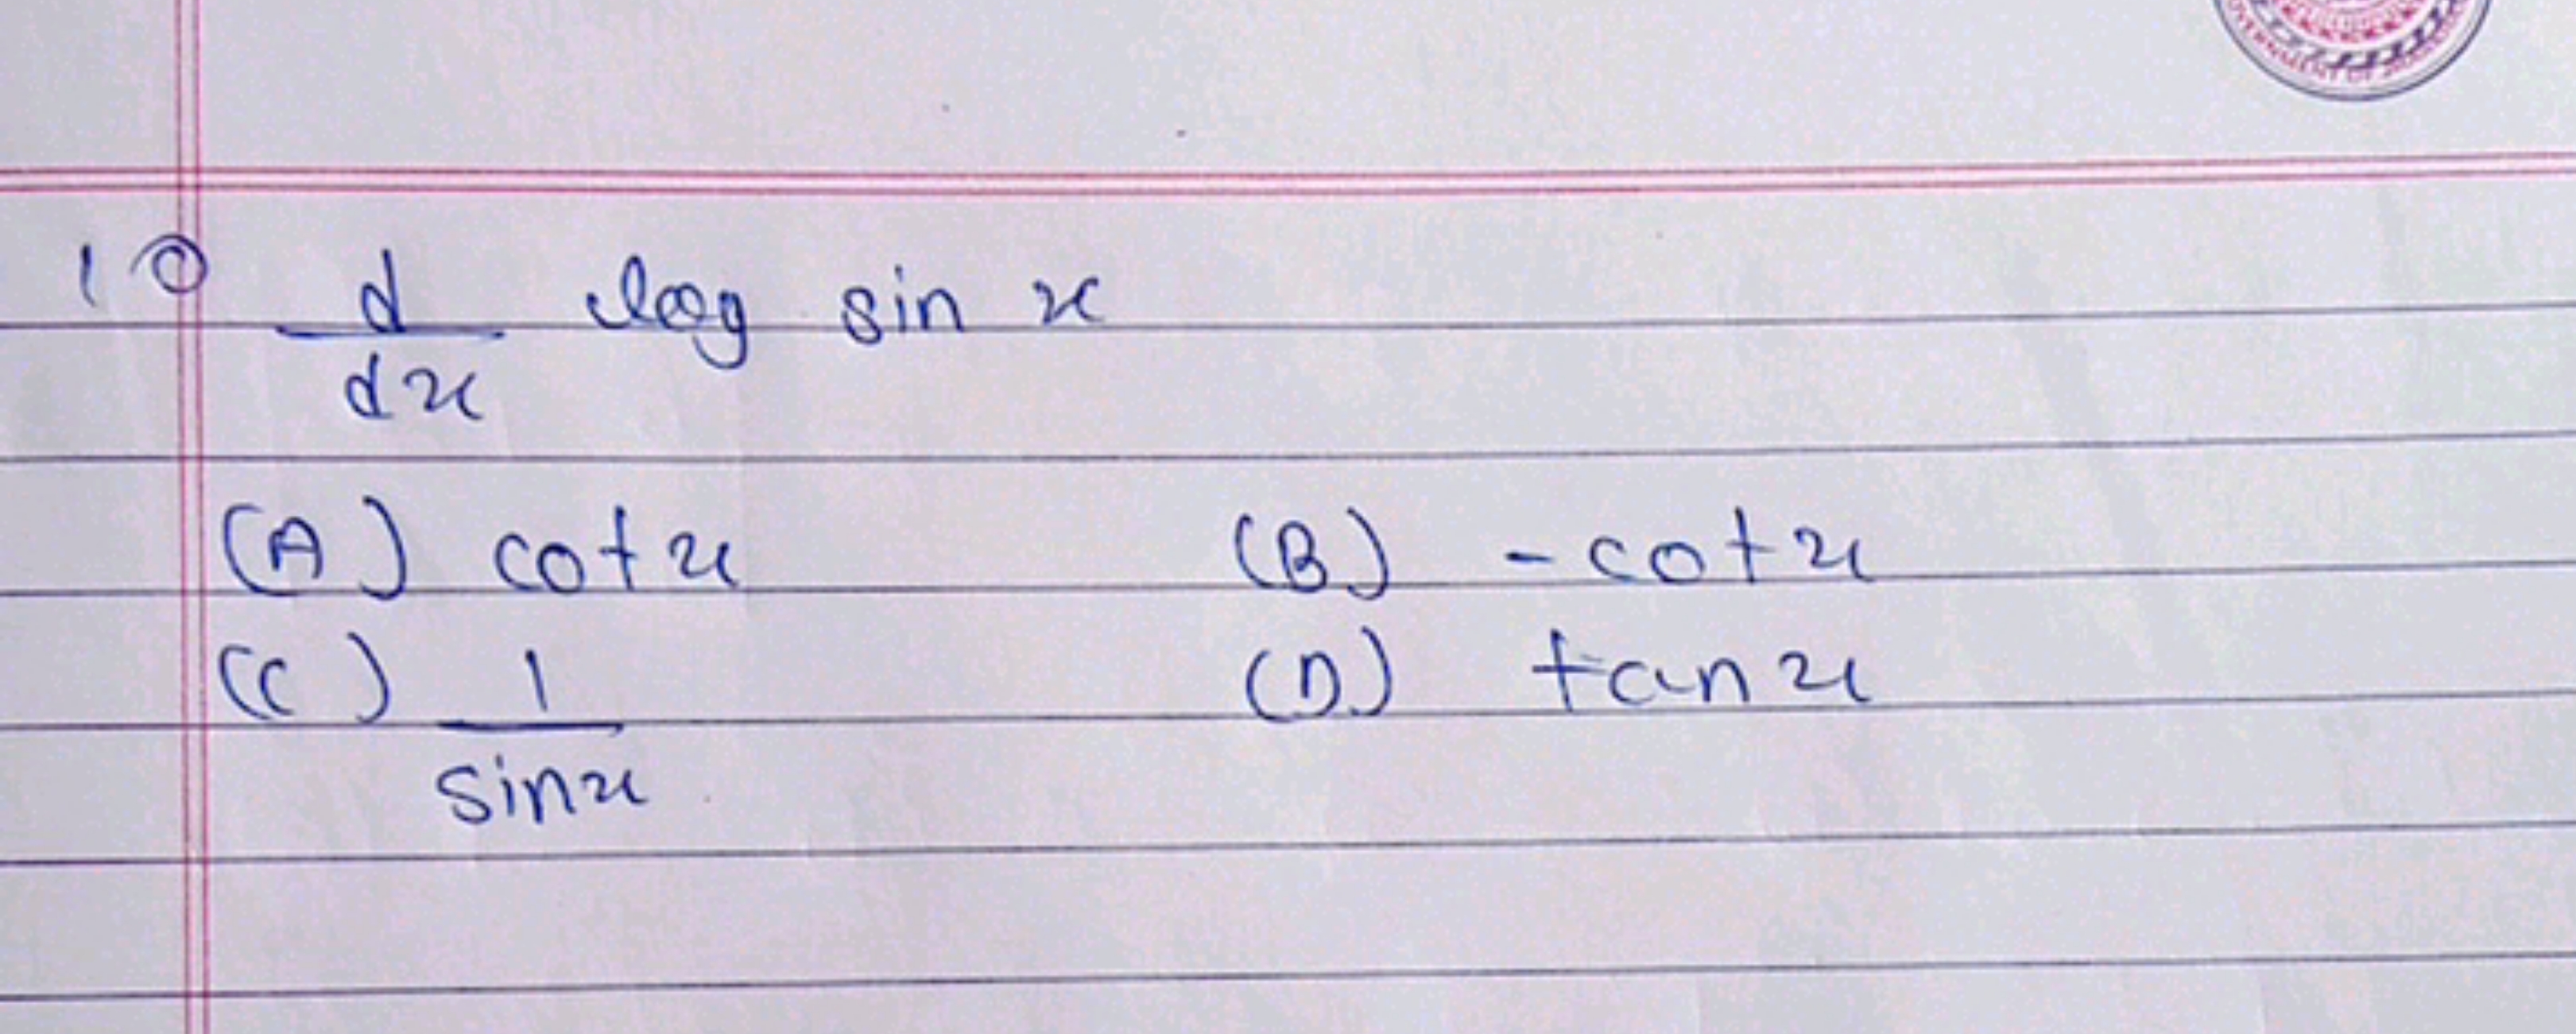 10 d/dx log sin x
(A) cot x (B) - cot x
(C) 1/sin x (D) tan x